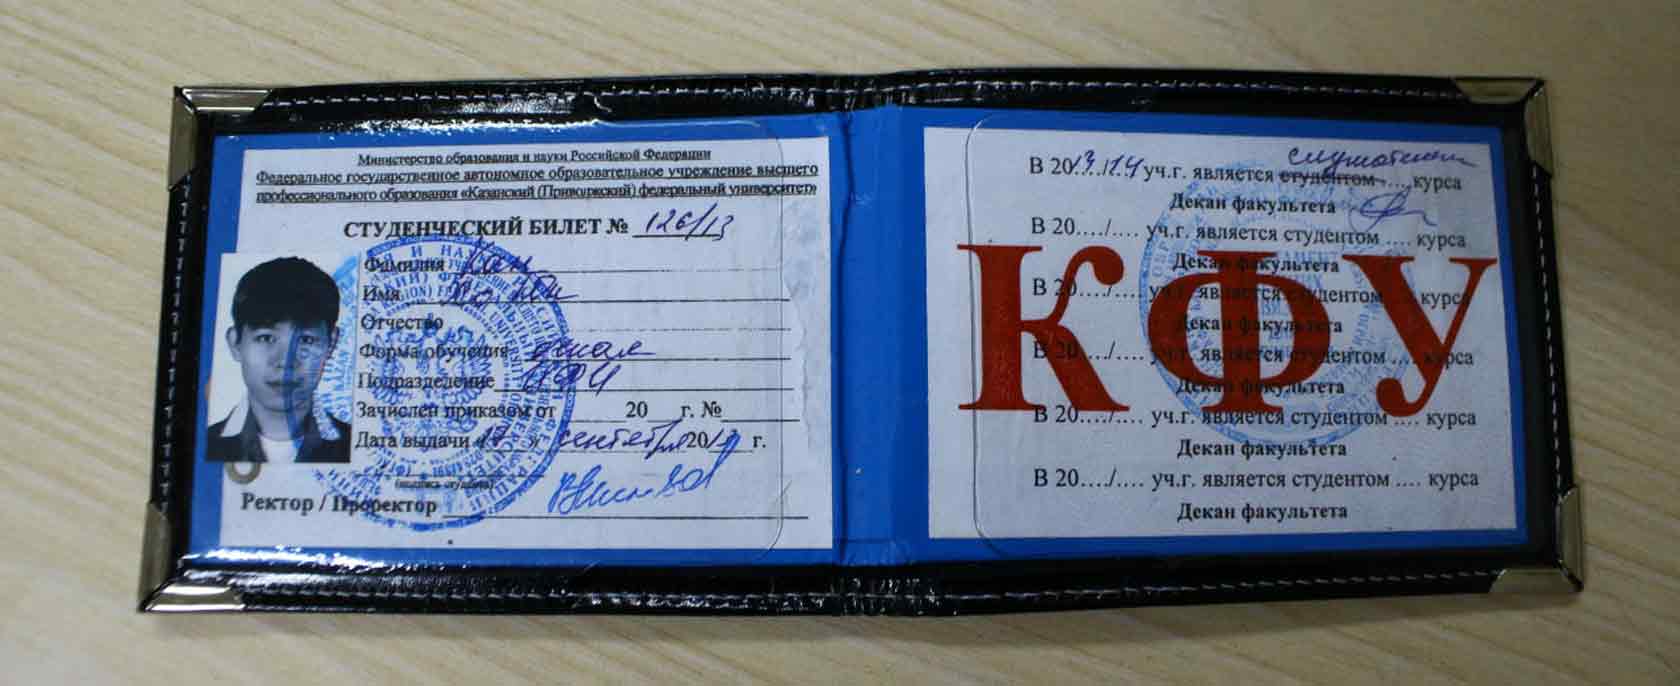 Министерство образования и науки Российской Федерации
Федеральное государственное автономное образовательное учреждение высшего
профессионального образования «Казанский (Приволжский) федеральный университет»
СТУДЕНЧЕСКИЙ БИЛЕТ № 126/13
Фамилия
Имя
Отчество
Форма обучения очная
Подразделение
Зачислен приказом от 20 г. №
Дата выдачи «12» сентября 2013 г.
(подпись студента)
Ректор / Проректор
В 2013/14 уч.г. является студентом слушателем .... курса
Декан факультета
В 20..../.... уч.г. является студентом .... курса
Декан факультета
В 20..../.... уч.г. является студентом .... курса
Декан факультета
В 20..../.... уч.г. является студентом .... курса
Декан факультета
В 20..../.... уч.г. является студентом .... курса
Декан факультета
В 20..../.... уч.г. является студентом .... курса
Декан факультета
КФУ